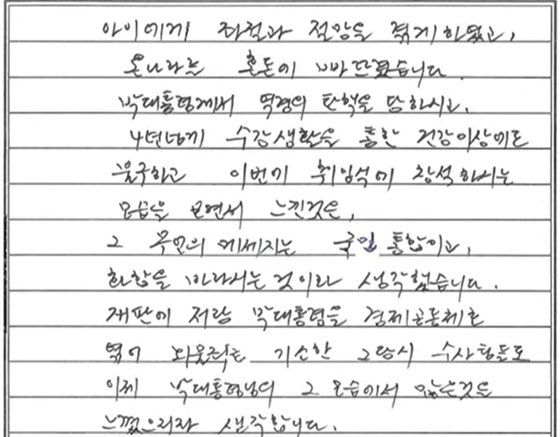 아이에게 좌절과 절망을 겪게 하였고,
온나라는 혼돈에 빠뜨렸습니다.
박대통령께서 역경의 탄핵을 당하시고,
4년넘게 수감생활을 통한 건강이상에도
불구하고 이번에 취임식에 참석하시는
모습을 보면서 느낀것은,
그 무언의 메세지는 국민 통합이고,
화합을 바라시는 것이라 생각했습니다.
재판에 저랑 박대통령을 경제공동체로
엮어 뇌물죄로 기소한 그당시 수사팀들도
이제 박대통령님의 그 모습에서 많은것을
느꼈으리라 생각합니다.